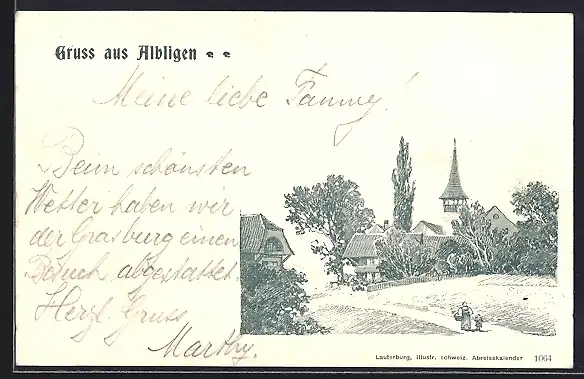 Gruss aus Albligen
Meine liebe Fanny!
Beim schönsten
Wetter haben wir
der Grasburg einen
Besuch abgestattet.
Herzl. Gruss
Marthy.
Lauterburg, illustr. schweiz. Abreisskalender 1064